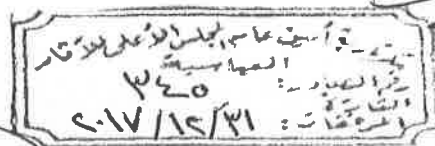 أمين عام المجلس الأعلى للآثار
رقم الصادر: ٣٤٥
التاريخ: ٢٠١٧/١٢/٣١
المرفقات: